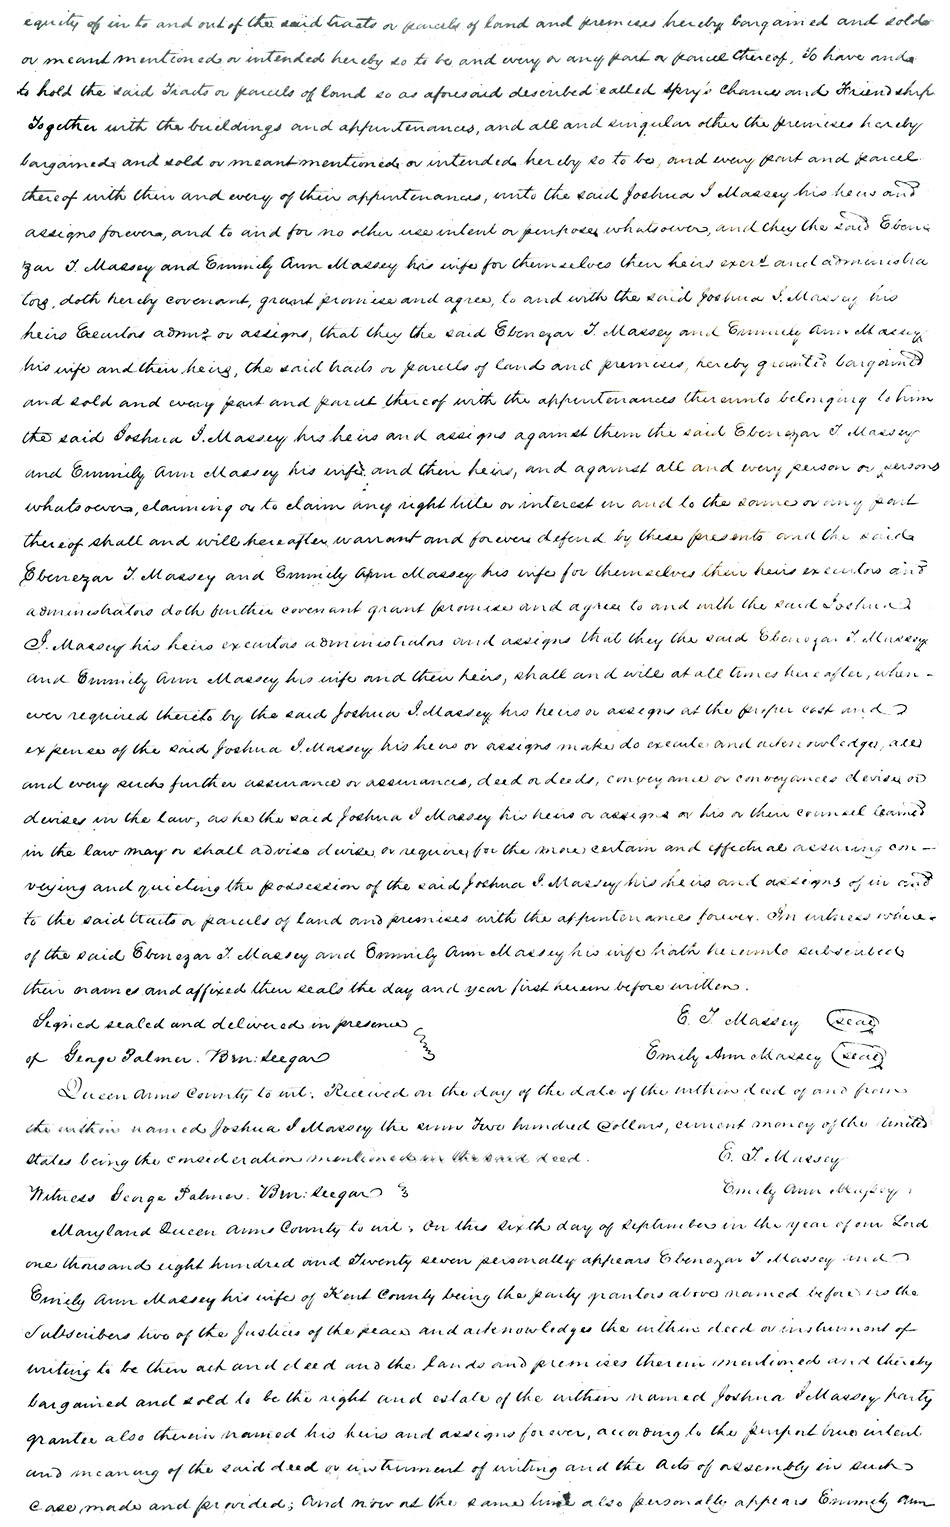 equity of in to and out of the said tracts or parcels of land and premises hereby bargained and sold
or meant mentioned or intended hereby so to be and every or any part or parcel thereof, To have and
to hold the said Tracts or parcels of land so as aforesaid described called Spry's Chance and Friendship
Together with the buildings and appurtenances, and all and singular other the premises hereby
bargained and sold or meant mentioned or intended hereby so to be, and every part and parcel
thereof with their and every of their appurtenances, unto the said Joshua I Massey his heirs and
assigns forever, and to and for no other use intent or purpose whatsoever, and they the said Ebene
zar T. Massey and Emmily Ann Massey his wife for themselves their heirs exers and administra
tors, doth hereby covenant, grant promise and agree, to and with the said Joshua I. Massey his
heirs Executors admrs or assigns, that they the said Ebenezar T. Massey and Emmily Ann Massey
his wife and their heirs, the said tracts or parcels of land and premises, hereby granted bargained
and sold and every part and parcel thereof with the appurtenances thereunto belonging to him
the said Joshua I. Massey his heirs and assigns against them the said Ebenezar T. Massey
and Emmily Ann Massey his wife, and their heirs, and against all and every person or persons
whatsoever, claiming or to claim any right title or interest in and to the same or any part
thereof shall and will hereafter warrant and forever defend by these presents and the said
Ebenezar T. Massey and Emmily Ann Massey his wife for themselves their heirs executors and
administrators doth further covenant grant promise and agree to and with the said Joshua
I. Massey his heirs executors administrators and assigns that they the said Ebenezar T. Massey
and Emmily Ann Massey his wife and their heirs, shall and will at all times hereafter, when-
ever required thereto by the said Joshua I. Massey his heirs or assigns at the proper cost and
expense of the said Joshua I. Massey his heirs or assigns make do execute and acknowledge, all
and every such further assurance or assurances, deed or deeds, conveyance or conveyances devise or
devises in the law, as he the said Joshua I Massey his heirs or assigns or his or their counsel learned
in the law may or shall advise devise or require, for the more certain and effectual assuring con-
veying and quieting the possession of the said Joshua I. Massey his heirs and assigns of in and
to the said tracts or parcels of land and premises with the appurtenances forever. In witness where-
of the said Ebenezar T. Massey and Emmily Ann Massey his wife hath hereunto subscribed
their names and affixed their seals the day and year first herein before written.
Signed sealed and delivered in presence E. T. Massey (seal)
of George Palmer. Brn: Seegar Emily Ann Massey (seal)
Queen Anns County to wit: Received on the day of the date of the within deed of and from
the within named Joshua I Massey the sum Two hundred Dollars, current money of the United
States being the consideration mentioned in the said deed. E. T. Massey
Witness George Palmer. Brn: Seegar Emily Ann Massey
Maryland Queen Anns County to wit; On this sixth day of September in the year of our Lord
one thousand eight hundred and Twenty seven personally appears Ebenezar T Massey and
Emily Ann Massey his wife of Kent County being the party grantors above named before us the
Subscribers two of the Justices of the peace and acknowledges the within deed or instrument of
writing to be their act and deed and the lands and premises therein mentioned and thereby
bargained and sold to be the right and estate of the within named Joshua I Massey party
grantee also therein named his heirs and assigns forever, according to the purport true intent
and meaning of the said deed or instrument of writing and the Acts of assembly in such
case made and provided; And now at the same time also personally appears Emmily Ann